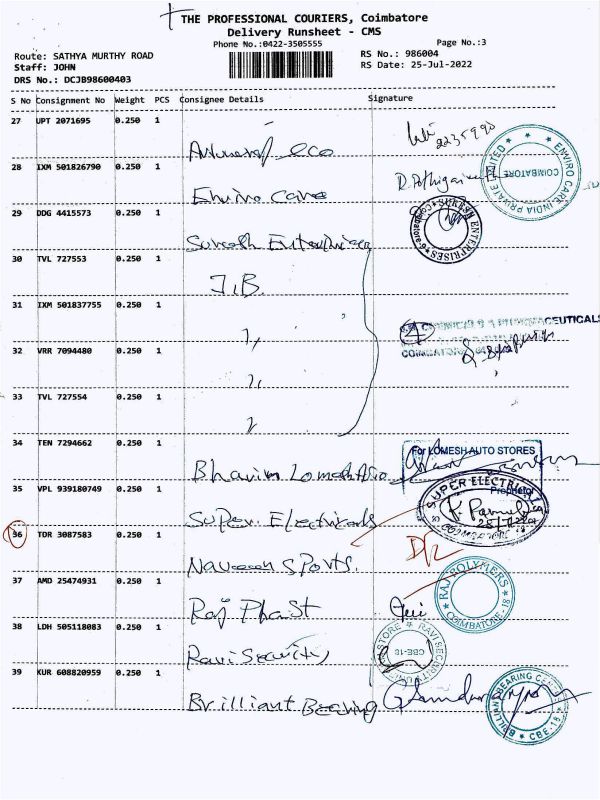 THE PROFESSIONAL COURIERS, Coimbatore
Delivery Runsheet - CMS
Phone No.:0422-3505555
Page No.:3
Route: SATHYA MURTHY ROAD
RS No.: 986004
Staff: JOHN
RS Date: 25-Jul-2022
DRS No.: DCJB98600403
S No Consignment No Weight PCS Consignee Details Signature
27 UPT 2071695 0.250 1
eco
2235990
28 IXM 501826790 0.250 1
Enviro Care
ENVIRO CARE INDIA PRIVATE LIMITED
COIMBATORE
29 DDG 4415573 0.250 1
Suresh Enterprises
SURESH ENTERPRISES
30 TVL 727553 0.250 1
J.B.
31 IXM 501837755 0.250 1
4
32 VRR 7094480 0.250 1
COIMBATORE
33 TVL 727554 0.250 1
34 TEN 7294662 0.250 1
For LOMESH AUTO STORES
Proprietor
35 VPL 939180749 0.250 1
Super Electricals
SUPER ELECTRICALS
COIMBATORE
36 TDR 3087583 0.250 1
Naveen Sports.
37 AMD 25474931 0.250 1
Raj
RAJ POLYMERS
COIMBATORE - 18
38 LDH 505118083 0.250 1
Ravi Security
RAVI SECURITY
STORE
CBE-18
39 KUR 608820959 0.250 1
Brilliant Bearing
BRILLIANT BEARING
CBE-18